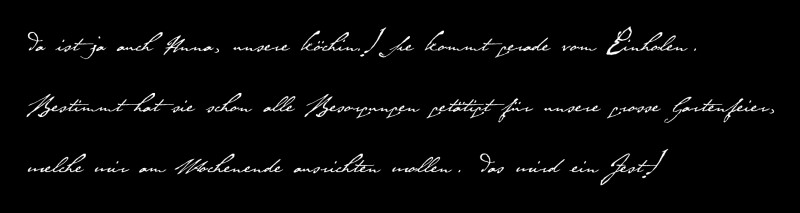 Da ist ja auch Anna, unsere Köchin! Sie kommt gerade vom Einholen.
Bestimmt hat sie schon alle Besorgungen getätigt für unsere grosse Gartenfeier,
welche wir am Wochenende ausrichten wollen. Das wird ein Fest!